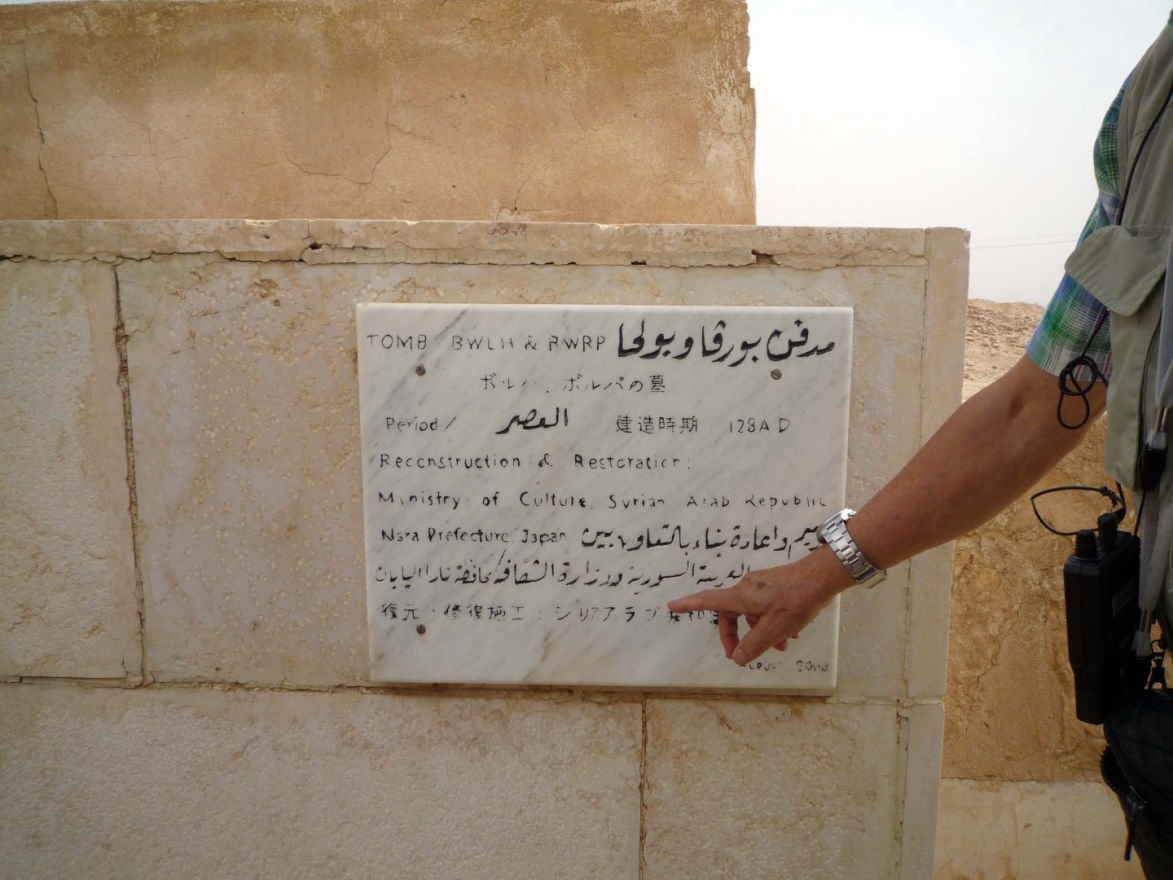 TOMB BWLH & BWRP مدفن بورفا وبولحا
ボルハ、ボルパの墓
Period / العصر 建造時期 128AD
Reconstruction & Restoration:
Ministry of Culture, Syrian Arab Republic
Nara Prefecture, Japan واعادة بناء بالتعاون بين
العربية السورية ووزارة الثقافة محافظة نارا اليابان
復元・修復施工:シリアアラブ共和